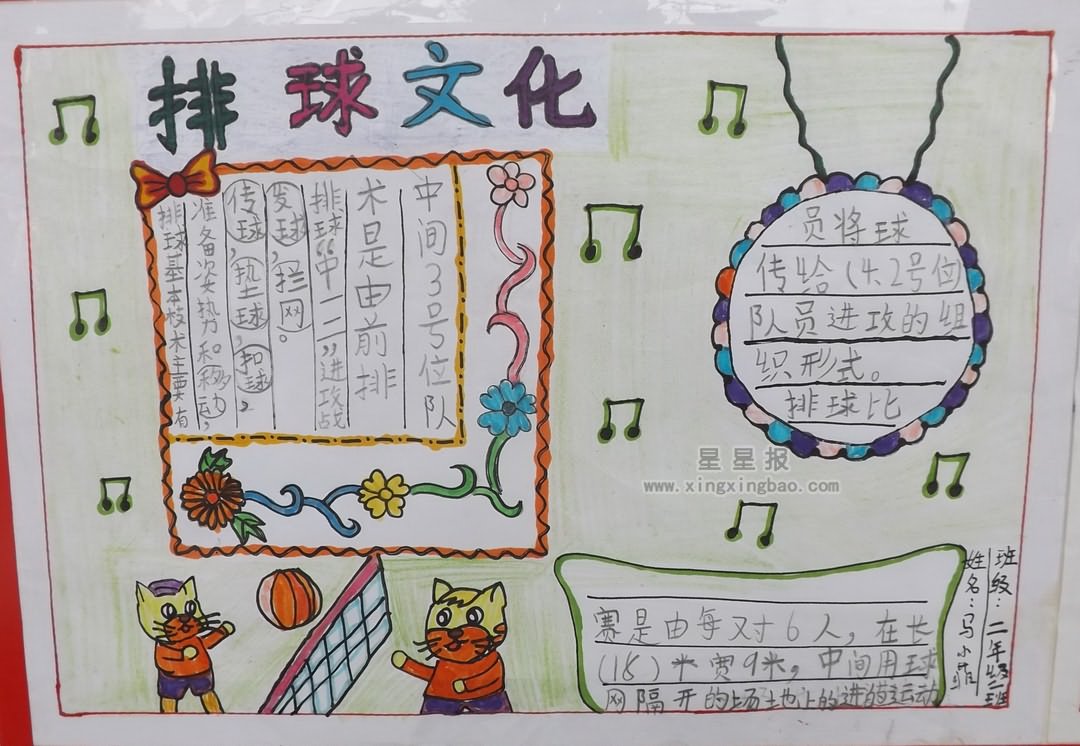 排球文化
排球基本技术主要有
准备姿势和移动,
传球,垫球,扣球,
发球,拦网。
排球“中一二”进攻战
术是由前排
中间3号位队
员将球
传给(4.2号位
队员进攻的组
织形式。
排球比
赛是由每对6人,在长
(18)米宽9米,中间用球
网隔开的场地上的进的运动
班级:二年级二班
姓名:马小菲
星星报
www.xingxingbao.com